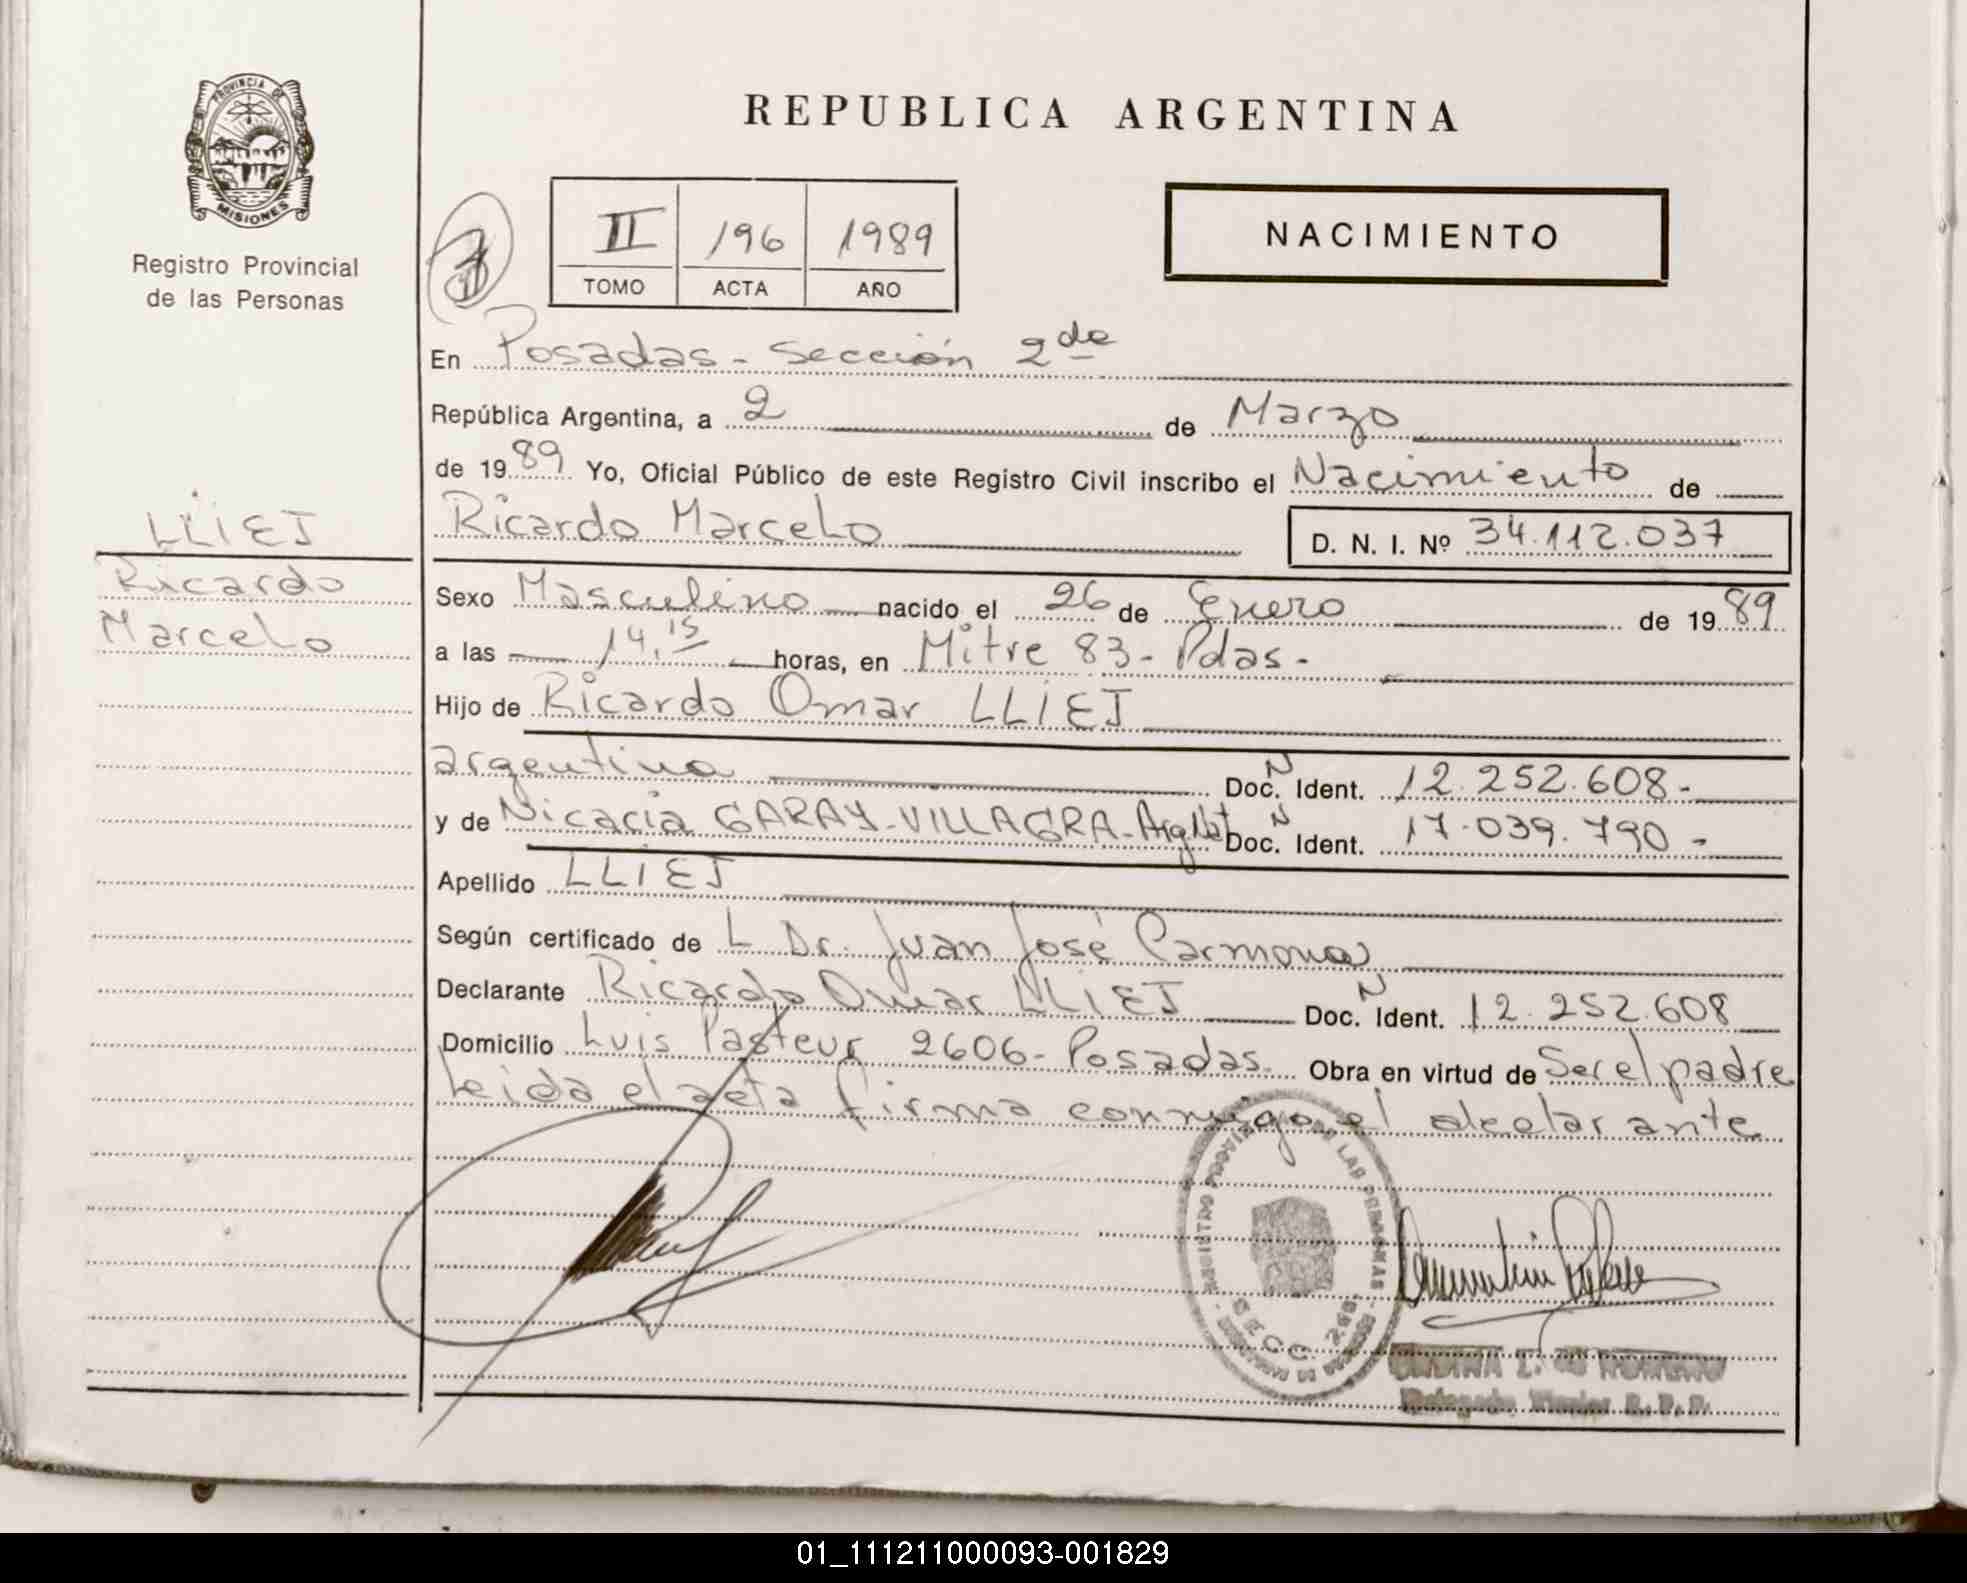 PROVINCIA DE
MISIONES
Registro Provincial
de las Personas
REPUBLICA ARGENTINA
II 196 1989
TOMO ACTA AÑO
NACIMIENTO
En Posadas - Sección 2da
República Argentina, a 2 de Marzo
de 1989 Yo, Oficial Público de este Registro Civil inscribo el Nacimiento de
Ricardo Marcelo D. N. I. Nº 34.112.037
LLIEJ
Ricardo
Marcelo
Sexo Masculino nacido el 26 de Enero de 1989
a las 14,15 horas, en Mitre 83 - Pdas -
Hijo de Ricardo Omar LLIEJ
argentina Doc. N Ident. 12.252.608 -
y de Nicacia GARAY - VILLAGRA - Arg Nat Doc. N Ident. 17.039.790 -
Apellido LLIEJ
Según certificado de L Dr. Juan José Carmona
Declarante Ricardo Omar LLIEJ Doc. N Ident. 12.252.608
Domicilio Luis Pasteur 2606 - Posadas. Obra en virtud de Ser el padre
Leida el acta firma conmigo el declarante
REGISTRO PROVINCIAL DE LAS PERSONAS
SECC. 2da
01_111211000093-001829